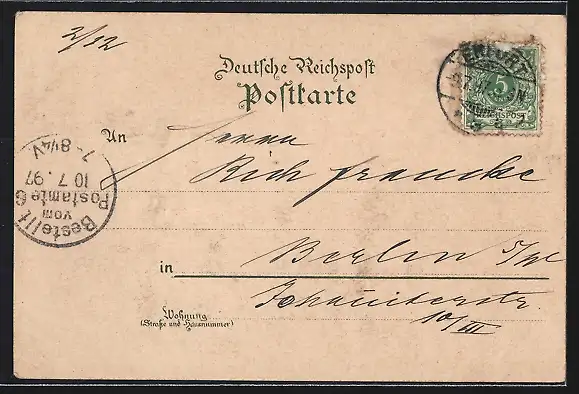 2/92
Deutsche Reichspost
Postkarte
ERFURT
5
REICHSPOST
An Herrn
Rich francke
Bestellt
vom
Postamte 6
10 7. 97
7-8¼V
in Berlin S/W
Wohnung
(Straße und Hausnummer)
10/III